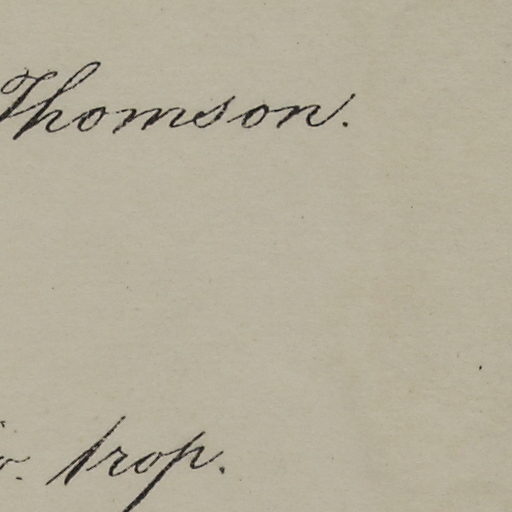 Thomson.
trop.